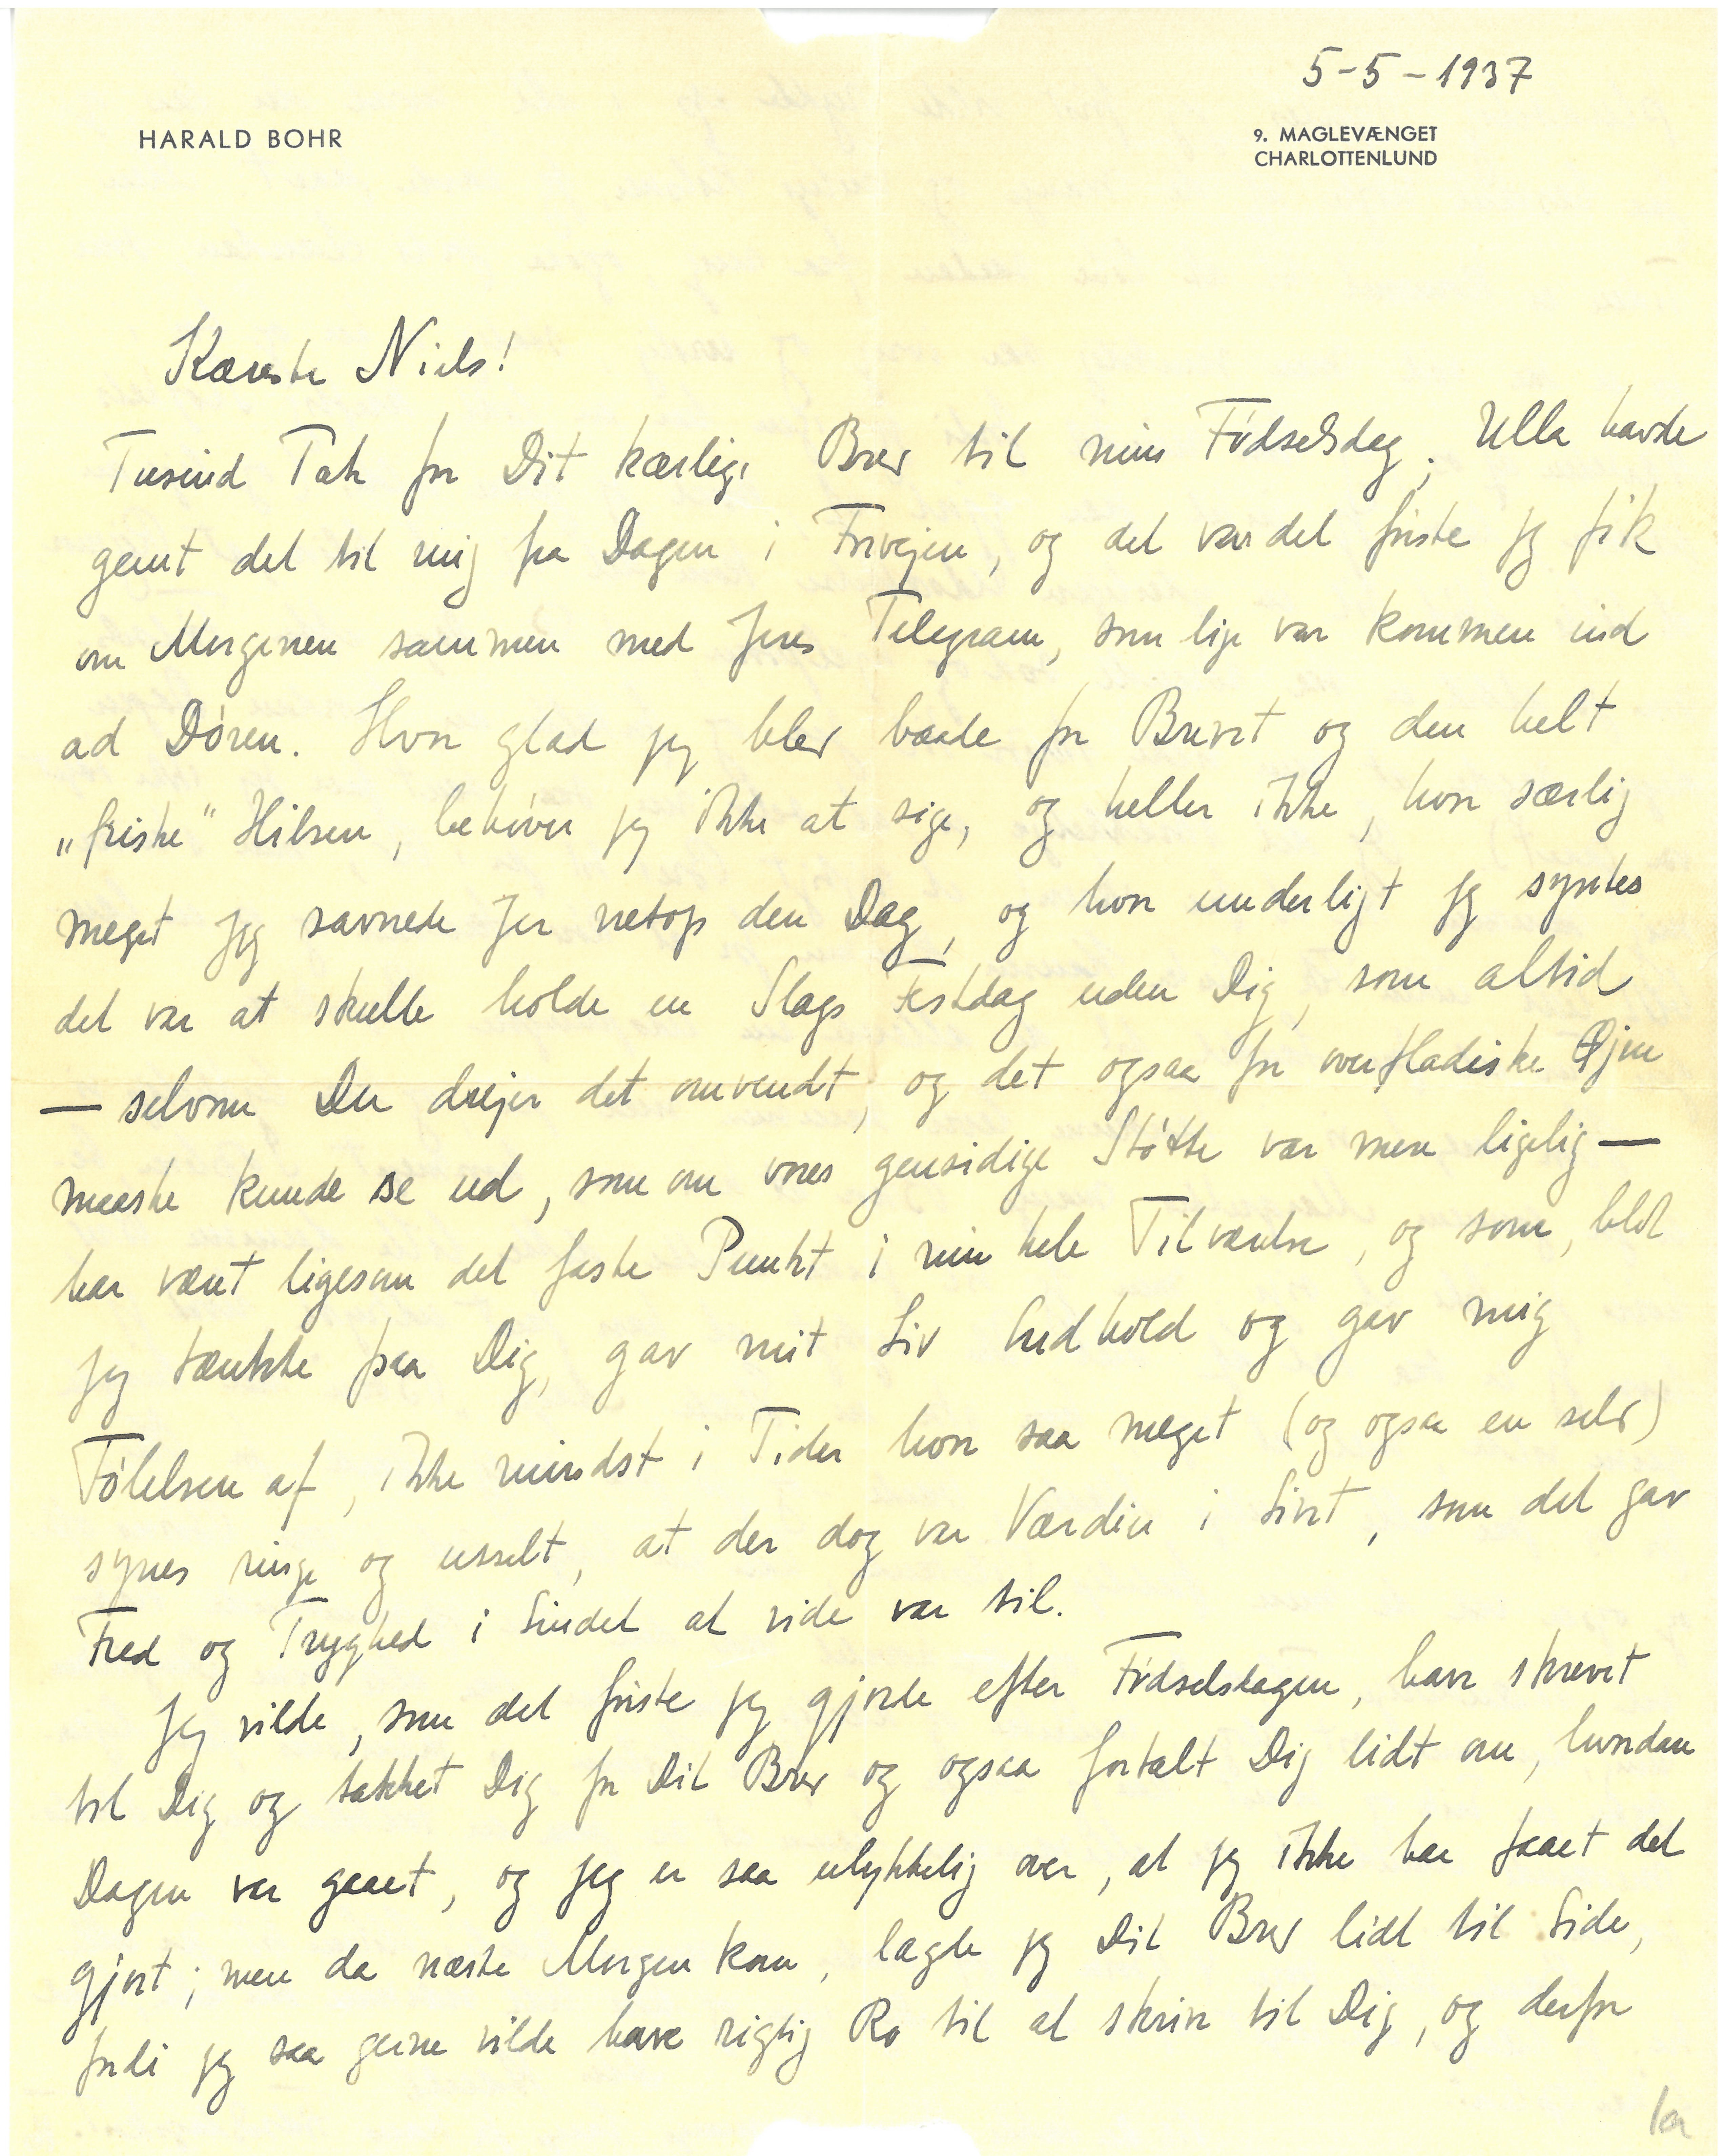 5-5-1937
HARALD BOHR
9. MAGLEVÆNGET
CHARLOTTENLUND
Kæreste Niels!
Tusind Tak for Dit kærlige Brev til min Fødselsdag. Ulla havde
gemt det til mig fra Dagen i Forvejen, og det var det første jeg fik
om Morgenen sammen med Jeres Telegram, som lige var kommen ind
ad Døren. Hvor glad jeg blev baade for Brevet og den helt
„friske" Hilsen, behøver jeg ikke at sige, og heller ikke, hvor særlig
meget jeg savnede Jer netop den Dag, og hvor underligt jeg syntes
det var at skulle holde en Slags Festdag uden Dig, som altid
— selvom Du drejer det omvendt, og det ogsaa for overfladiske Øjne
maaske kunde se ud, som om vores gensidige Støtte var mere ligelig —
har været ligesom det faste Punkt i min hele Tilværelse, og som, blot
jeg tænkte paa Dig, gav mit Liv Indhold og gav mig
Følelsen af, ikke mindst i Tider hvor saa meget (og ogsaa en selv)
synes ringe og usselt, at der dog var Værdier i Livet, som det gav
Fred og Tryghed i Sindet at vide var til.
Jeg vilde, som det første jeg gjorde efter Fødselsdagen, have skrevet
til Dig og takket Dig for Dit Brev og ogsaa fortalt Dig lidt om, hvordan
Dagen var gaaet, og jeg er saa ulykkelig over, at jeg ikke har faaet det
gjort; men da næste Morgen kom, lagde jeg Dit Brev lidt til Side,
fordi jeg saa gerne vilde have rigtig Ro til at skrive til Dig, og derfor
1a